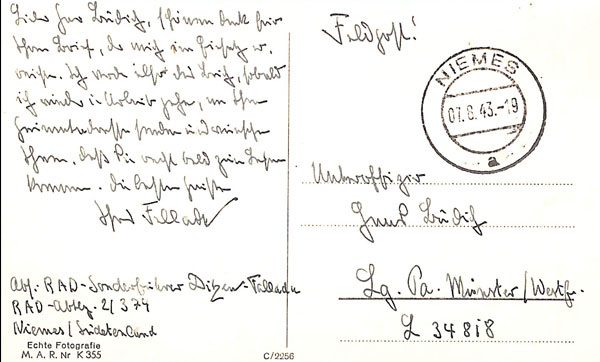 Herr schönen Dank für
Ihren Brief, der mich im Einsatz er-
reichte. Ich werde das Buch, sobald
ich wieder in Urlaub gehe, an Ihre
Heimatadresse senden und wünsche
Ihnen, daß Sie recht bald zum Lesen
kommen. Die besten Grüße
Ihres Fallada
Abs. RAD-Sonderführer Ditzen-Fallada
RAD-Abtlg. 2/374
Niemes/Sudetenland
Echte Fotografie
M. A. R. Nr K 355
C/2256
Feldpost!
NIEMES
07.8.43.-19
a
Unteroffizier
Lg. Pa. Münster/Westf.
L 34818